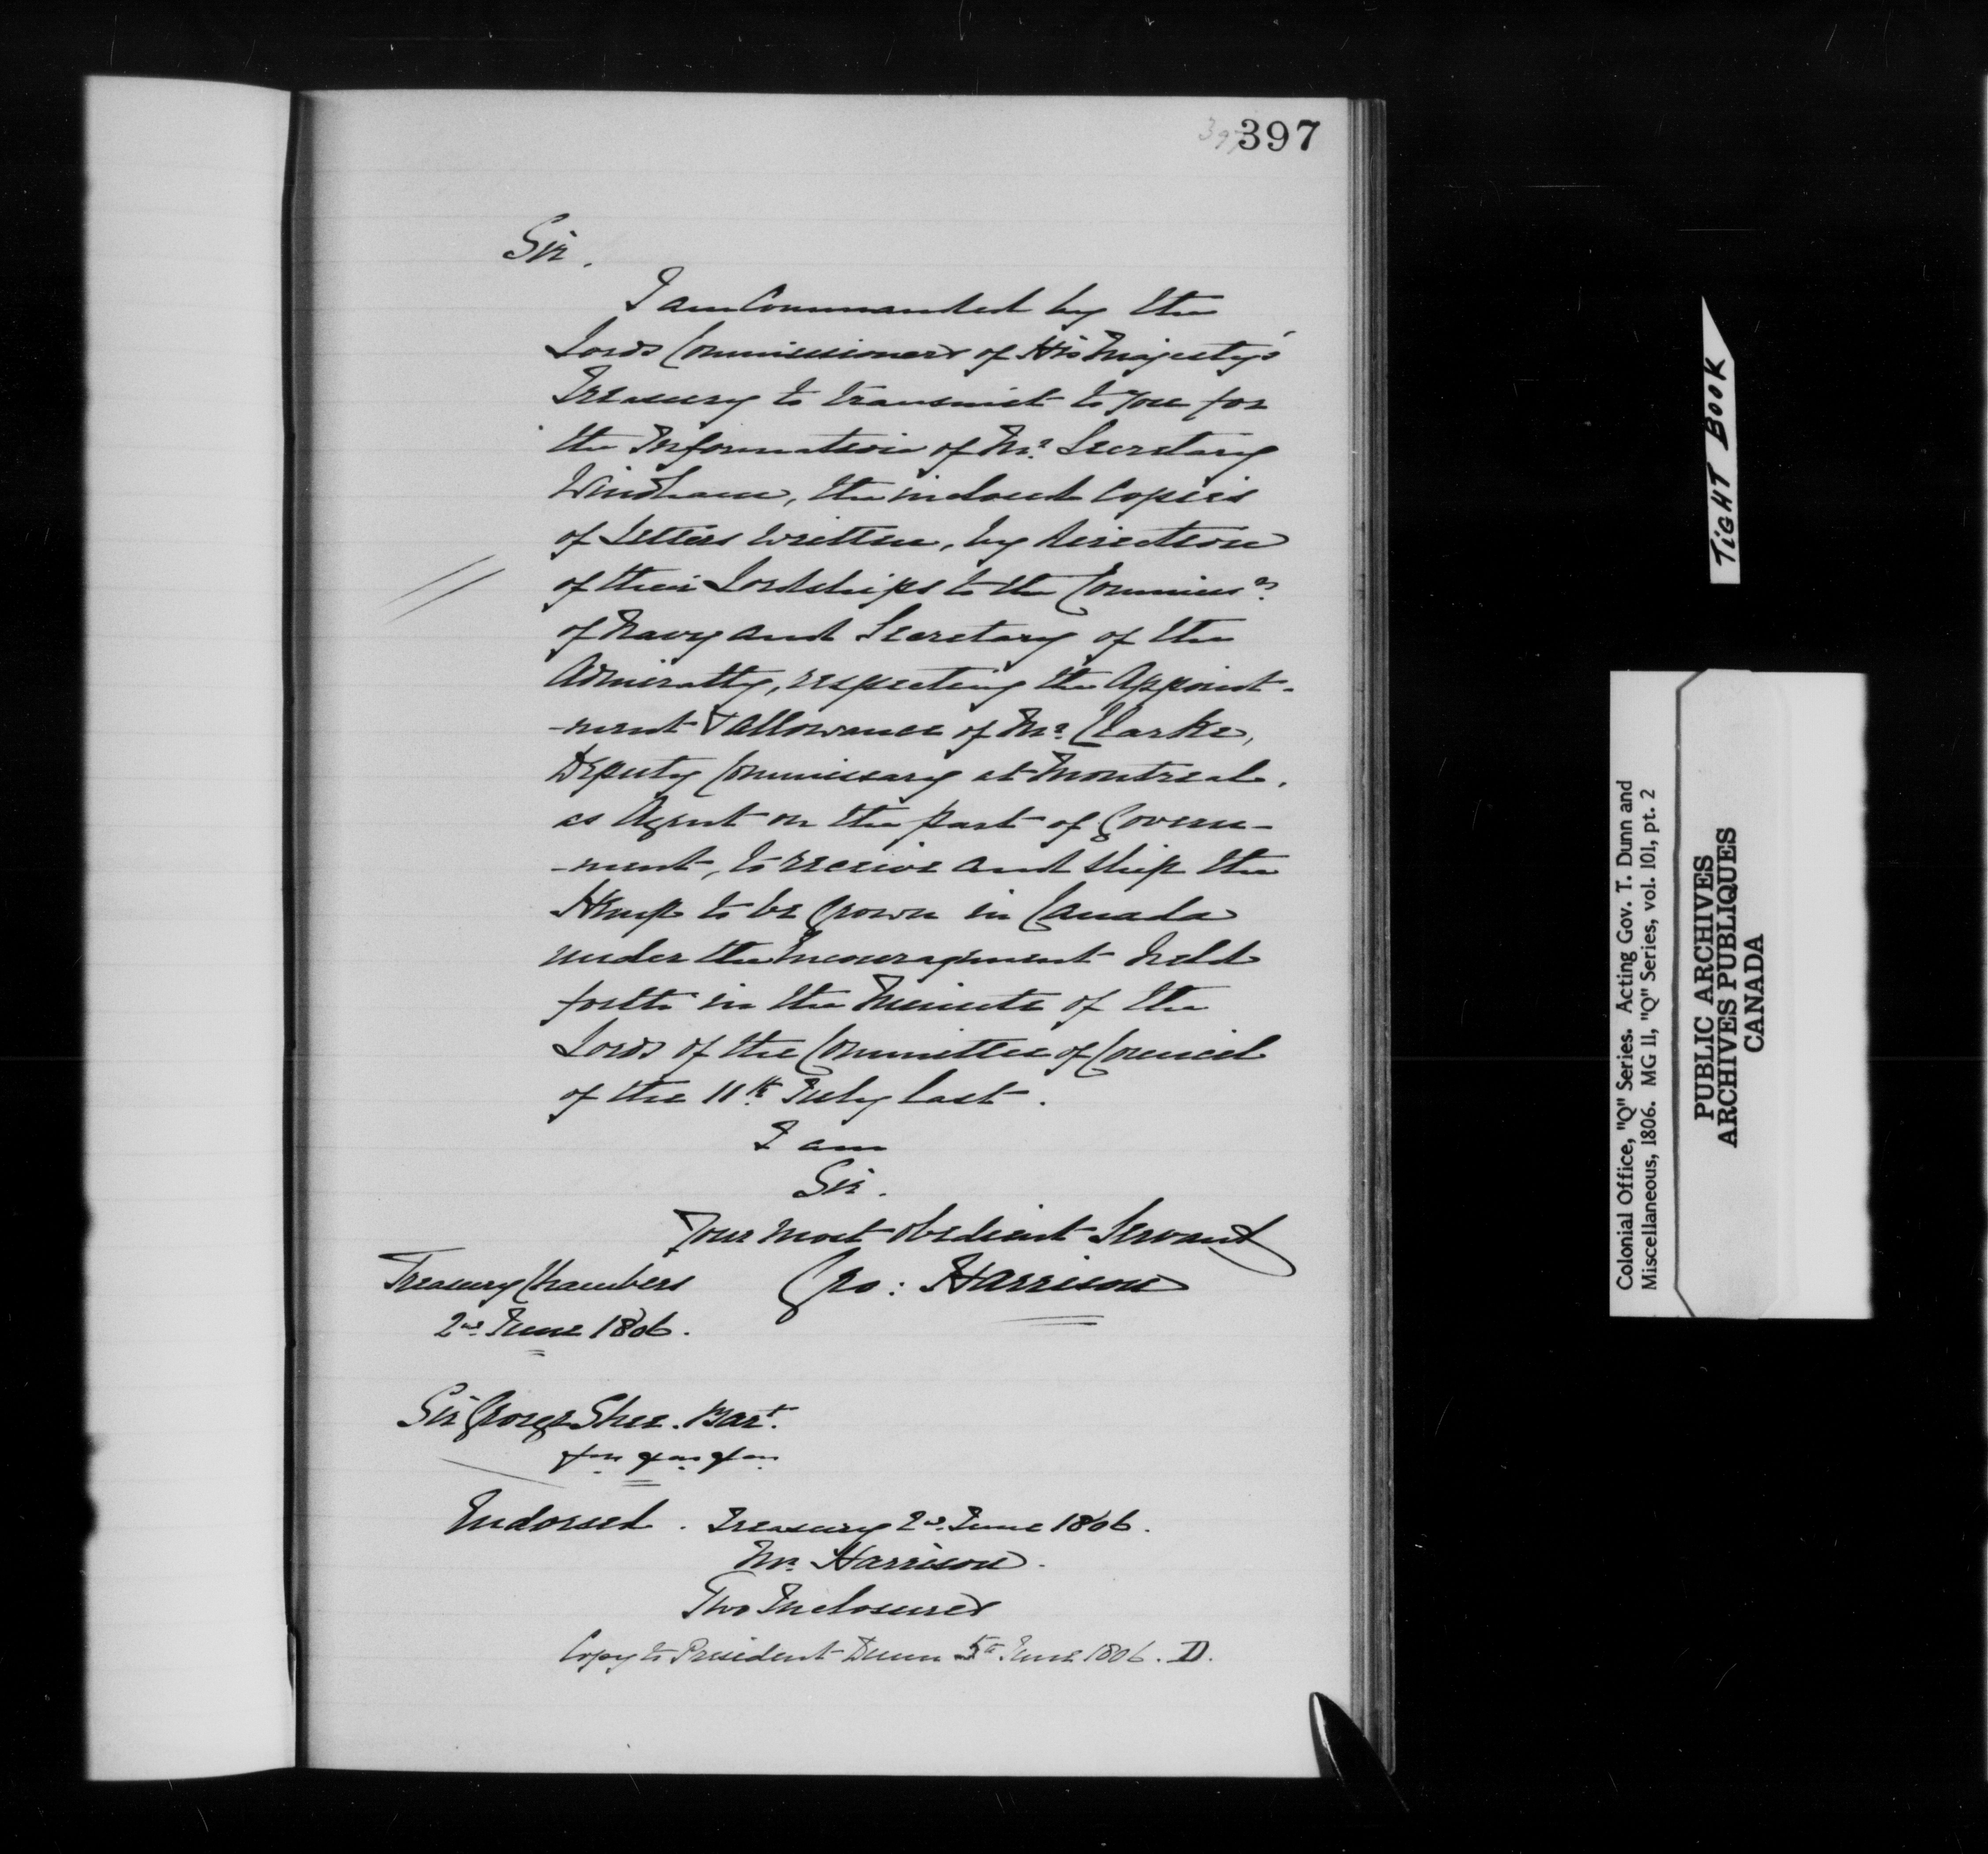 397
397
Sir.
I am Commanded by the
Lords Commissioners of His Majesty's
Treasury to transmit to you for
the Information of Mr. Secretary
Windham, the inclosed Copies
of Letters written, by direction
of their Lordships to the Commissrs.
of Navy and Secretary of the
Admiralty, respecting the Appoint-
-ment & allowance of Mr. Clarke,
Deputy Commissary at Montreal.
as Agent on the part of Govern-
-ment, to receive and ship the
Hemp to be Grown in Canada
under the Encouragement held
forth in the Minute of the
Lords of the Committee of Council
of the 11th July last.
I am
Sir.
Your most obedient Servant
Geo: Harrison
Treasury Chambers
2nd June 1806.
Sir George Shee. Bart.
Endorsed. Treasury 2nd June 1806.
Mr. Harrison.
Two Inclosures
Copy to President Dunn 5th June 1806. D.
TIGHT BOOK
Colonial Office, "Q" Series. Acting Gov. T. Dunn and
Miscellaneous, 1806. MG 11, "Q" Series, vol. 101, pt. 2
PUBLIC ARCHIVES
ARCHIVES PUBLIQUES
CANADA